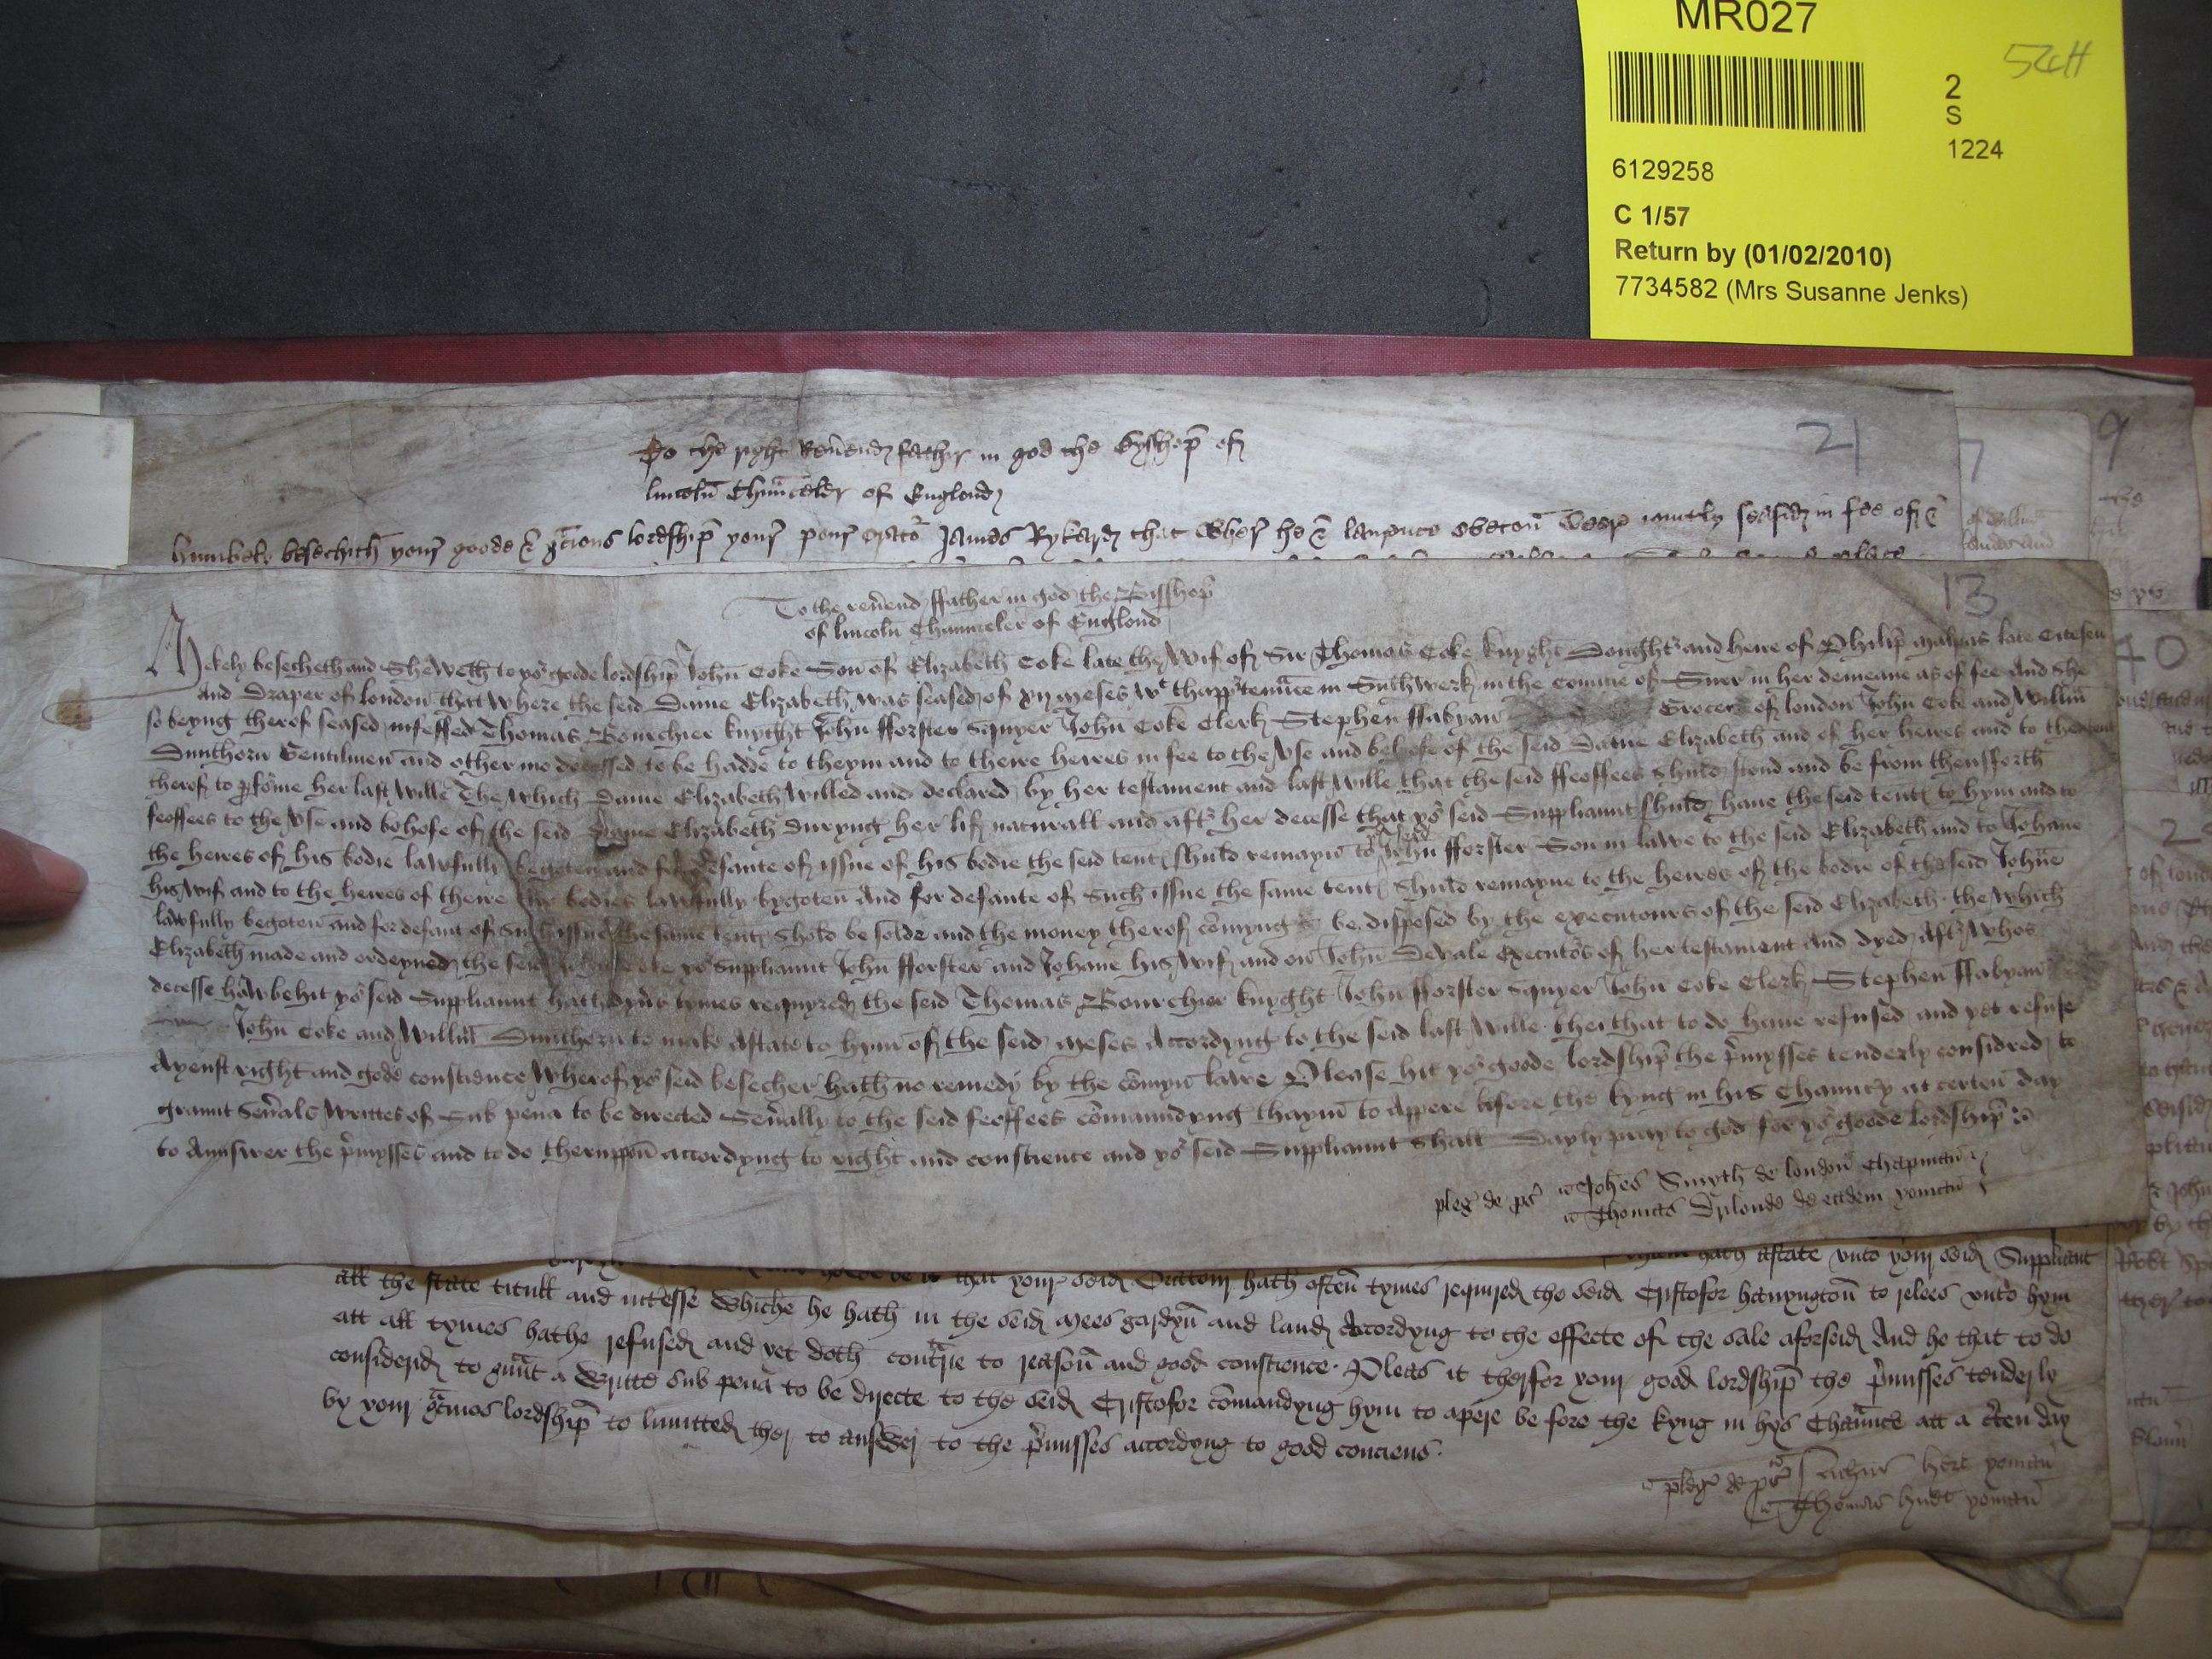 MR027
52cH
2
S
1224
6129258
C 1/57
Return by (01/02/2010)
7734582 (Mrs Susanne Jenks)
21
7
9
To the ryght Reu̅end father in god the Bysshop̅ of
lincoln̅ Chaunceler of Englond
Humbely besechith your goode & gr̅cious lordship̅ your pour orator James Rykard that wher he & laurence were ioyntly seasid in fee of &
13
To the reu̅end ffather in god the Bisshop̅
of lincoln̅ Chaunceler of Englond
Mekely besecheth and Sheweth to yor goode lordship̅ John̅ Coke Son̅ of Elizabeth Coke late the Wif of Sir Thomas Coke knyght Doughtr and heire of Philip̅ Malpas late Citesen
And Draper of london̅ that where the seid Dame Elizabeth was seased of xij meses wt thapprtenn̅ce in Suthwerk in the Countie of Surr̅ in her demeane as of fee And She
so beyng therof seased infeffed Thomas Bourchier knyght John̅ fforster Squyer John̅ Coke Clerk Stephen ffabyan Grocer of london̅ John̅ Coke and Willm̅
Dunthorn Gentilmen and other mo decessed to be hadde to theym and to theire heires in fee to the vse and behofe of the seid Dame Elizabeth and of her heires and to thentent
therof to p̱fo̅rme her last Wille The which Dame Elizabeth Willed and declared by her testament and last wille that the seid ffeoffees shuld stond and be from thensforth
feoffees to the vse and behofe of the seid Dame Elizabeth duryng her lif naturall and aftr her decesse that yor seid Suppliaunt shuld haue the seid tent to hym and to
the heires of his bodie lawfully begoten and for defaute of issue of his bodie the seid tent shuld remayn to the seid John̅ fforster Son in lawe to the seid Elizabeth and to Johane
his wif and to the heires of theire bodies lawfully bygoten̅ And for defaute of Such issue the same tent Shuld remayne to the heires of the bodie of the seid Joh̅ne
lawfully begoten̅ and for defaut of Such issue the same tent Shold be solde and the money therof co̅myng be disposed by the executours of the seid Elizabeth the which
Elizabeth made and ordeyned the seid yor Suppliaunt John̅ fforster and Johane his wif and on John̅ Devale Executors of her testament And dyed Aftr whos
decesse haw be hit yor seid Suppliaunt hath dyu̅s tymes requyred the seid Thomas Bourchier knyght John̅ fforster Squyer John̅ Coke Clerk Stephen ffabyan
John̅ Coke and Willm̅ Dunthorn to make Astate to hym of the seid meses Accordyng to the seid last wille thei that to do haue refused and yet refuse
Ayenst right and gode conscience Wherof yor seid besecher hath no remedy by the co̅myn lawe Please hit yor goode lordship̅ the p̅mysses tenderly considred to
graunt seu̅als writtes of Sub pena to be directed Seu̅ally to the seid feoffees co̅maundyng thaym̅ to Appere bifore the kyng in his Chaunc̅y at certen̅ day
to Aunswer the p̅mysses and to do theruppon̅ accordyng to right and conscience and yor seid Suppliaunt shall Dayly pray to god for yor goode lordship̅
pleg̅ de ps̅
Joh̅es Smyth de london̅ Chapman
Thomas de eadem yoman̅
hath astate vnto your seid Suppliant
that your seid Oratour hath often̅ tymes requyred the seid Cristofor hanyngton̅ to reles vnto hym
all the state titull and int̅esse whiche he hath in the seid mees gardyn̅ and land Accordyng to the effecte of the sale aforseid And he that to do
att all tymes hathe refused and yet doth contr̅rie to reason̅ and good conscience Pleas it therfor your good lordship̅ the p̅misses tenderly
considerid to gun̅t a writte sub pena to be directe to the seid Cristofor co̅mandyng hym to apere be fore the kyng in hys Chaunc̅e att a c̅ten day
by your gr̅cius lordship̅ to limitted ther to answer to the p̅misses accordyng to good conciens
pleg̅ de ps̅
hert yoman̅
Thomas hudt yoman̅